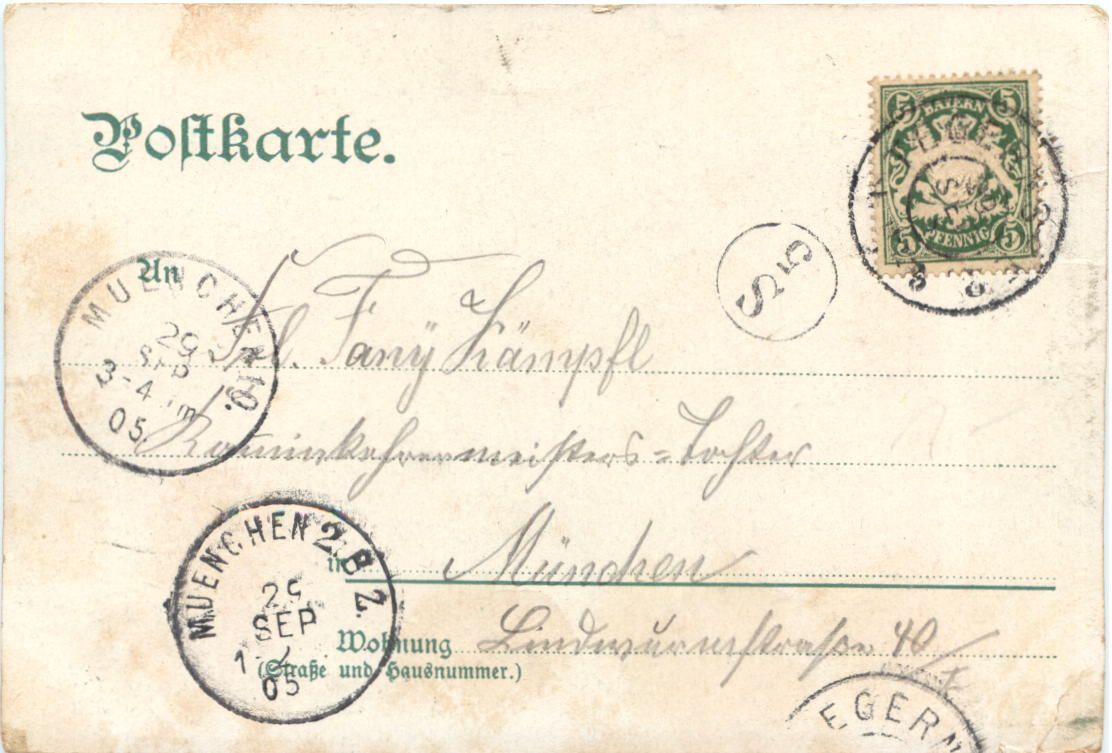 Postkarte.
5 BAYERN 5
5 PFENNIG 5
SEP
S 5
An
Frl. Fany Kämpfl
Kaminkehrermeisters=Tochter
in München
Wohnung Lindwurmstraße 40/
(Straße und Hausnummer.)
MUENCHEN 10.
29
SEP
3-4 Nm
05.
MUENCHEN 2. B.Z.
SEP
05
EGERN